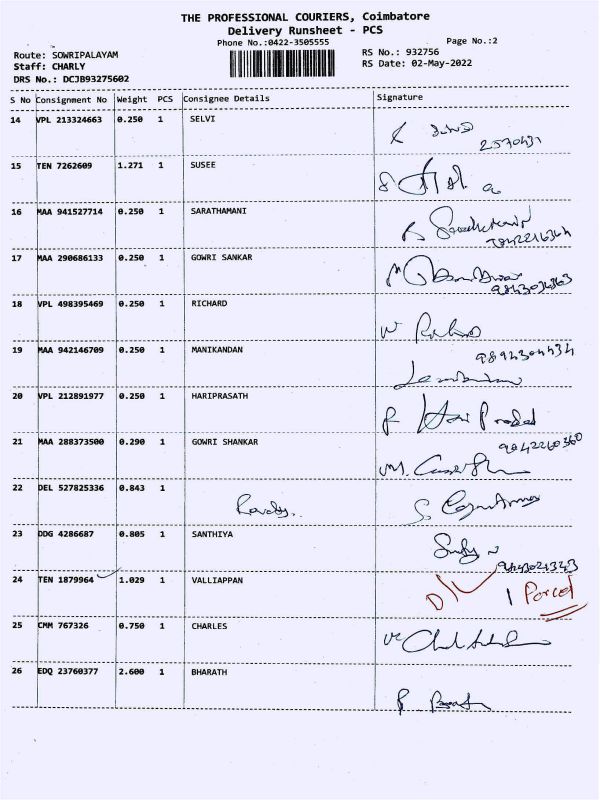 THE PROFESSIONAL COURIERS, Coimbatore
Delivery Runsheet - PCS
Phone No.:0422-3505555 Page No.:2
Route: SOWRIPALAYAM RS No.: 932756
Staff: CHARLY RS Date: 02-May-2022
DRS No.: DCJB93275602
S No Consignment No Weight PCS Consignee Details Signature
14 VPL 213324663 0.250 1 SELVI
2570431
15 TEN 7262609 1.271 1 SUSEE
16 MAA 941527714 0.250 1 SARATHAMANI
17 MAA 290686133 0.250 1 GOWRI SANKAR
18 VPL 498395469 0.250 1 RICHARD
19 MAA 942146709 0.250 1 MANIKANDAN
9894304434
20 VPL 212891977 0.250 1 HARIPRASATH
21 MAA 288373500 0.290 1 GOWRI SHANKAR
9842260360
22 DEL 527825336 0.843 1
23 DDG 4286687 0.805 1 SANTHIYA
24 TEN 1879964 1.029 1 VALLIAPPAN D/L 1 Parcel
25 CMM 767326 0.750 1 CHARLES
26 EDQ 23760377 2.600 1 BHARATH